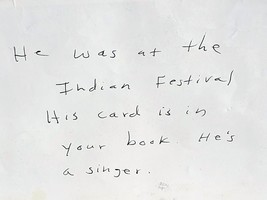 He was at the
Indian Festival
His card is in
your book He's
a singer.